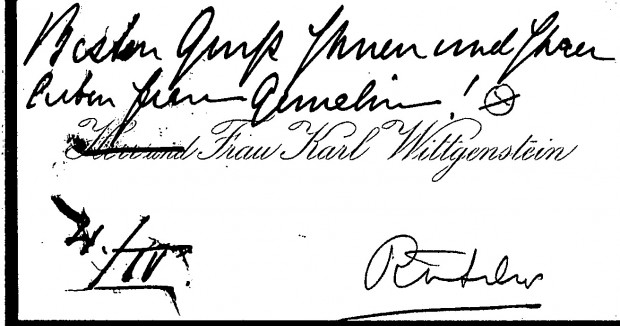 Besten Gruß Ihnen und Ihrer
lieben Frau Gemalin!
Herr und Frau Karl Wittgenstein
/IV.